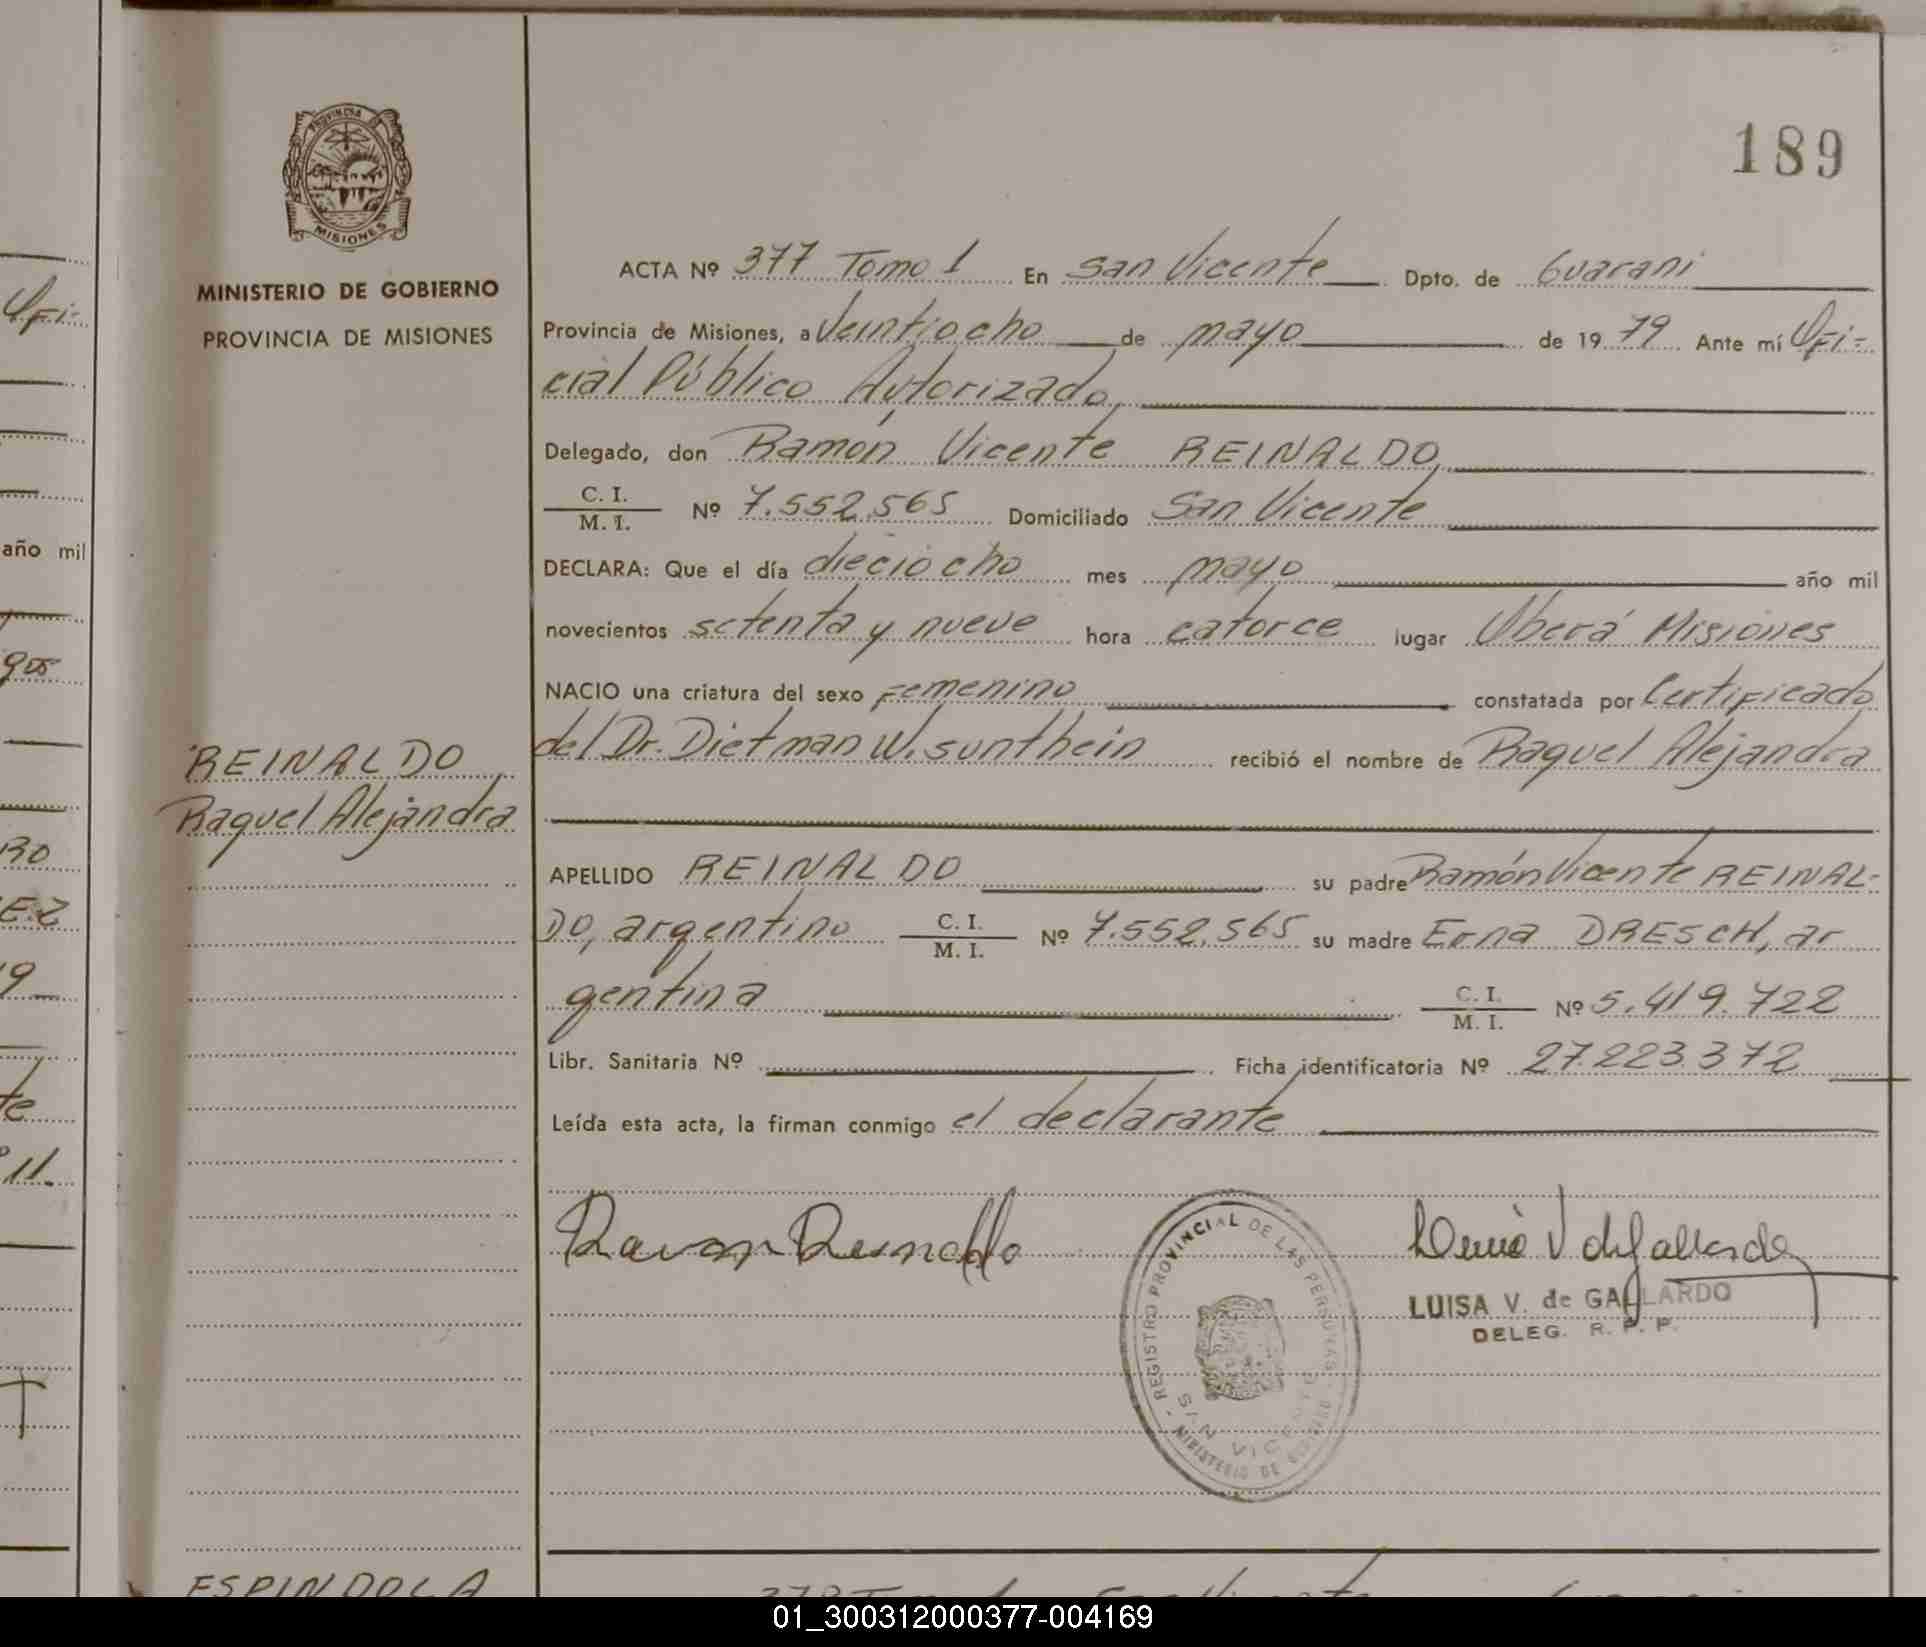 PROVINCIA DE
MISIONES
MINISTERIO DE GOBIERNO
PROVINCIA DE MISIONES
189
ACTA Nº 377 Tomo 1 En San Vicente Dpto. de Guarani
Provincia de Misiones, a Veintiocho de mayo de 1979 Ante mí Ofi-
cial Público Autorizado,
Delegado, don Ramón Vicente REINALDO,
C. I. / M. I. Nº 7.552.565 Domiciliado San Vicente
DECLARA: Que el día dieciocho mes mayo año mil
novecientos setenta y nueve hora catorce lugar Oberá Misiones
NACIO una criatura del sexo Femenino constatada por Certificado
del Dr. Dietman W. sunthein recibió el nombre de Raquel Alejandra
REINALDO
Raquel Alejandra
APELLIDO REINALDO su padre Ramón Vicente REINAL-
DO, argentino C. I. / M. I. Nº 7.552.565 su madre Erna DRESCH, ar
gentina C. I. / M. I. Nº 5.419.722
Libr. Sanitaria Nº Ficha identificatoria Nº 27.223.372
Leída esta acta, la firman conmigo el declarante
Ramon Reinaldo
REGISTRO PROVINCIAL DE LAS PERSONAS
SAN VICENTE
MINISTERIO DE GOBIERNO
LUISA V. de GALLARDO
DELEG. R. P. P.
ESPINDOLA
Ofi-
año mil
RO
EZ
te
11.
01_300312000377-004169